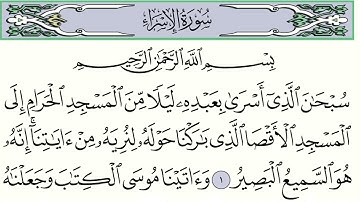 سُورَةُ ٱلْإِسْرَاءِ
بِسْمِ ٱللَّهِ ٱلرَّحْمَٰنِ ٱلرَّحِيمِ
سُبْحَٰنَ ٱلَّذِىٓ أَسْرَىٰ بِعَبْدِهِۦ لَيْلًا مِّنَ ٱلْمَسْجِدِ ٱلْحَرَامِ إِلَى
ٱلْمَسْجِدِ ٱلْأَقْصَا ٱلَّذِى بَٰرَكْنَا حَوْلَهُۥ لِنُرِيَهُۥ مِنْ ءَايَٰتِنَآ ۚ إِنَّهُۥ
هُوَ ٱلسَّمِيعُ ٱلْبَصِيرُ ١ وَءَاتَيْنَا مُوسَى ٱلْكِتَٰبَ وَجَعَلْنَٰهُ